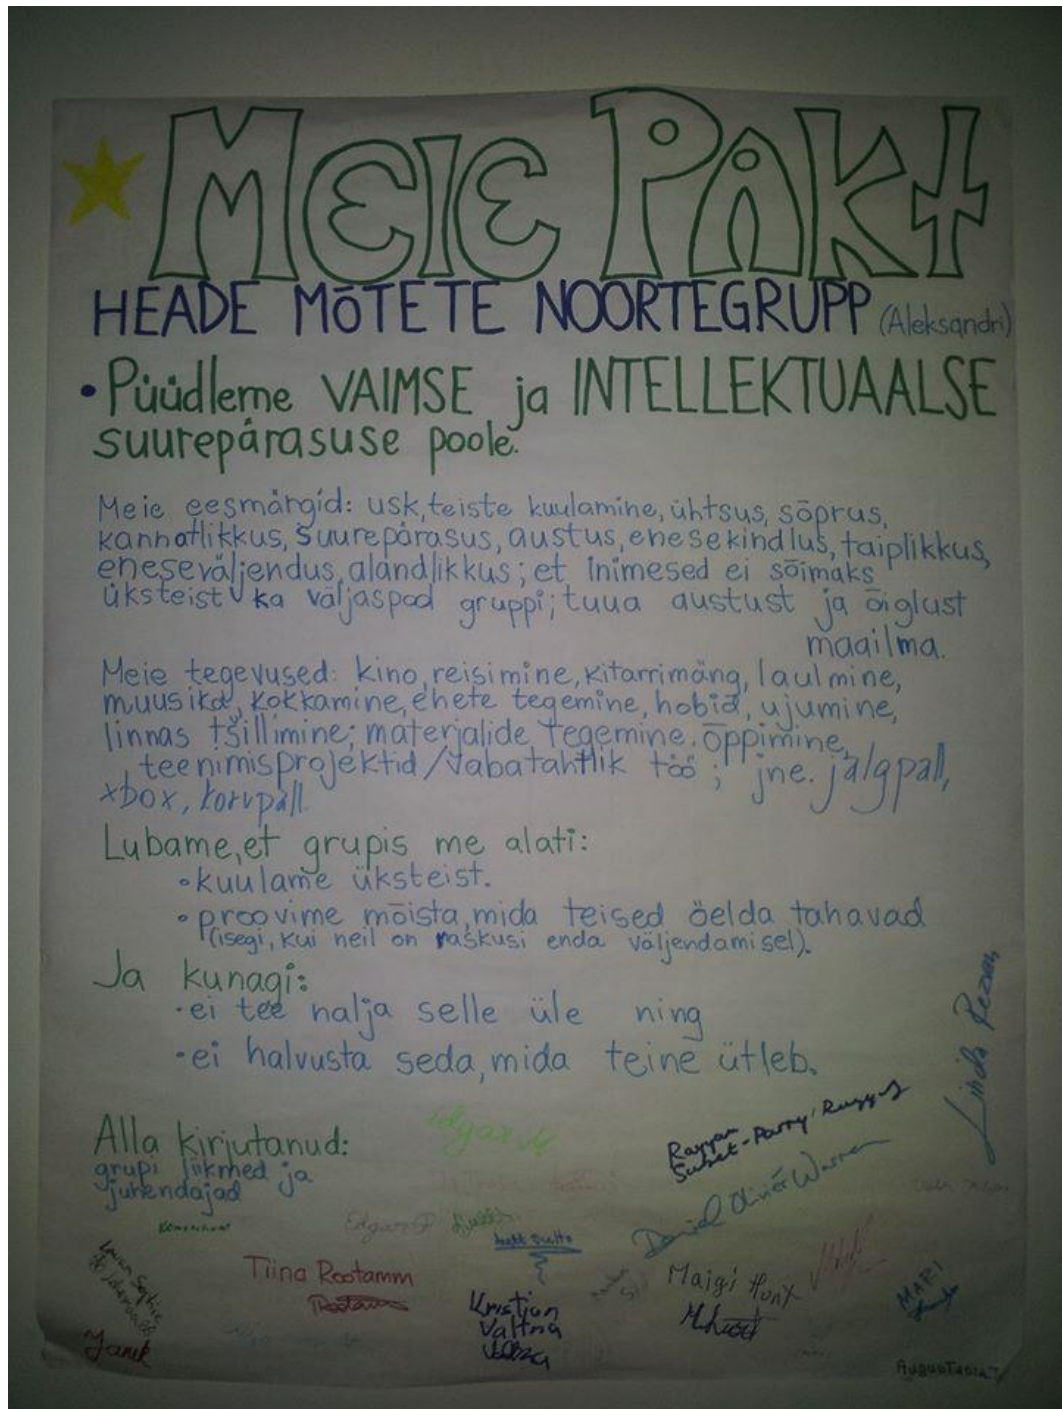 MEIE PAKT
HEADE MÕTETE NOORTEGRUPP (Aleksandri)
• Püüdleme VAIMSE ja INTELLEKTUAALSE
suurepärasuse poole.
Meie eesmärgid: usk, teiste kuulamine, ühtsus, sõprus,
kannatlikkus, suurepärasus, austus, enesekindlus, taiplikkus,
eneseväljendus, alandlikkus; et inimesed ei sõimaks
üksteist ka väljaspool gruppi; tuua austust ja õiglust
maailma.
Meie tegevused: kino, reisimine, kitarrimäng, laulmine,
muusika, kokkamine, ehete tegemine, hobid, ujumine,
linnas tšillimine; materjalide tegemine, õppimine,
teenimisprojektid/vabatahtlik töö; jne. jalgpall,
xbox, korvpall.
Lubame, et grupis me alati:
• kuulame üksteist.
• proovime mõista, mida teised öelda tahavad
(isegi, kui neil on raskusi enda väljendamisel).
Ja kunagi:
• ei tee nalja selle üle ning
• ei halvusta seda, mida teine ütleb.
Linda
Alla kirjutanud:
grupi liikmed ja
juhendajad
Edgar M
Rayyan
Sabet-Parry
David Olivier Warren
Edgars P
Tiina Rootamm
Kristjan
Valtna
Maigi Hunt
MARI
Janek